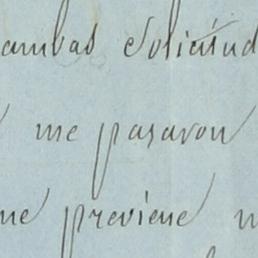 ambas solicitud
me pasaron
me previene